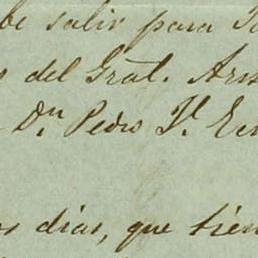 be salir para
s del Gral.
Dn Pedro
os dias, que tien